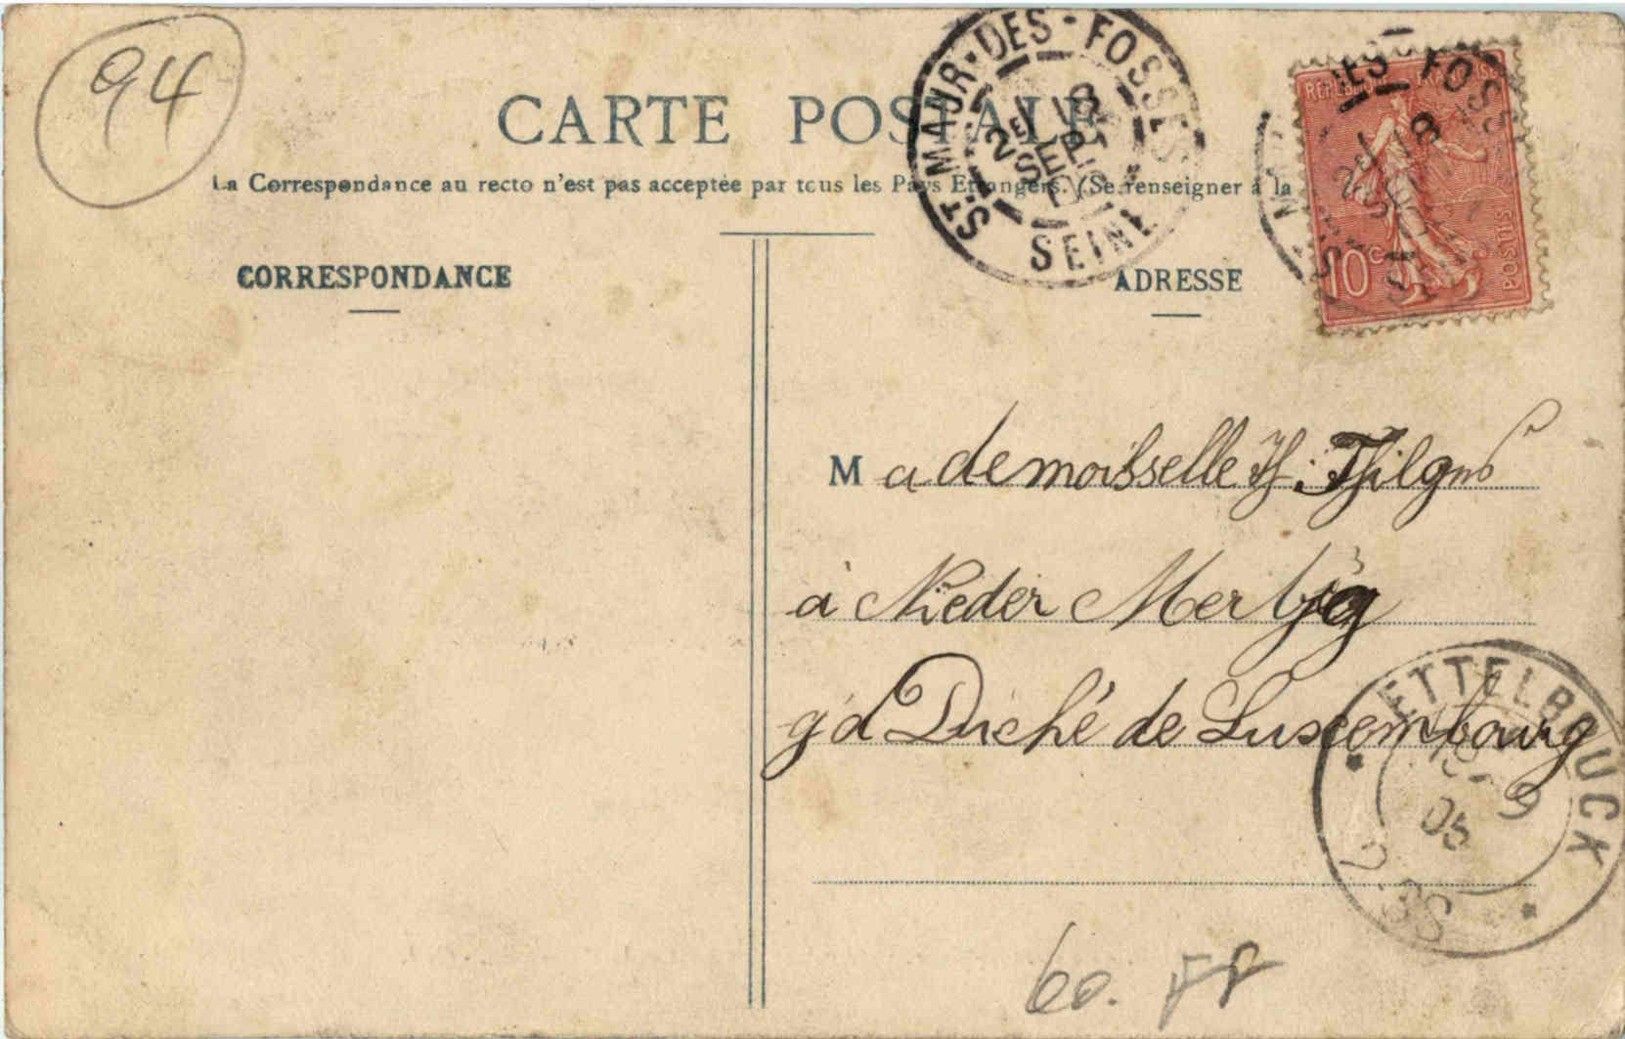 94
CARTE POSTALE
La Correspondance au recto n'est pas acceptée par tous les Pays Etrangers. (Se renseigner à la
ST-MAUR-DES-FOSSES
18
SEPT
05
SEINE
DES FOSS
18
10c
POSTES
CORRESPONDANCE
ADRESSE
Mademoisselle H. Thilges
à Nieder Merbzig
gd Duché de Luxembourg
ETTELBRUCK
9
05
60. FF